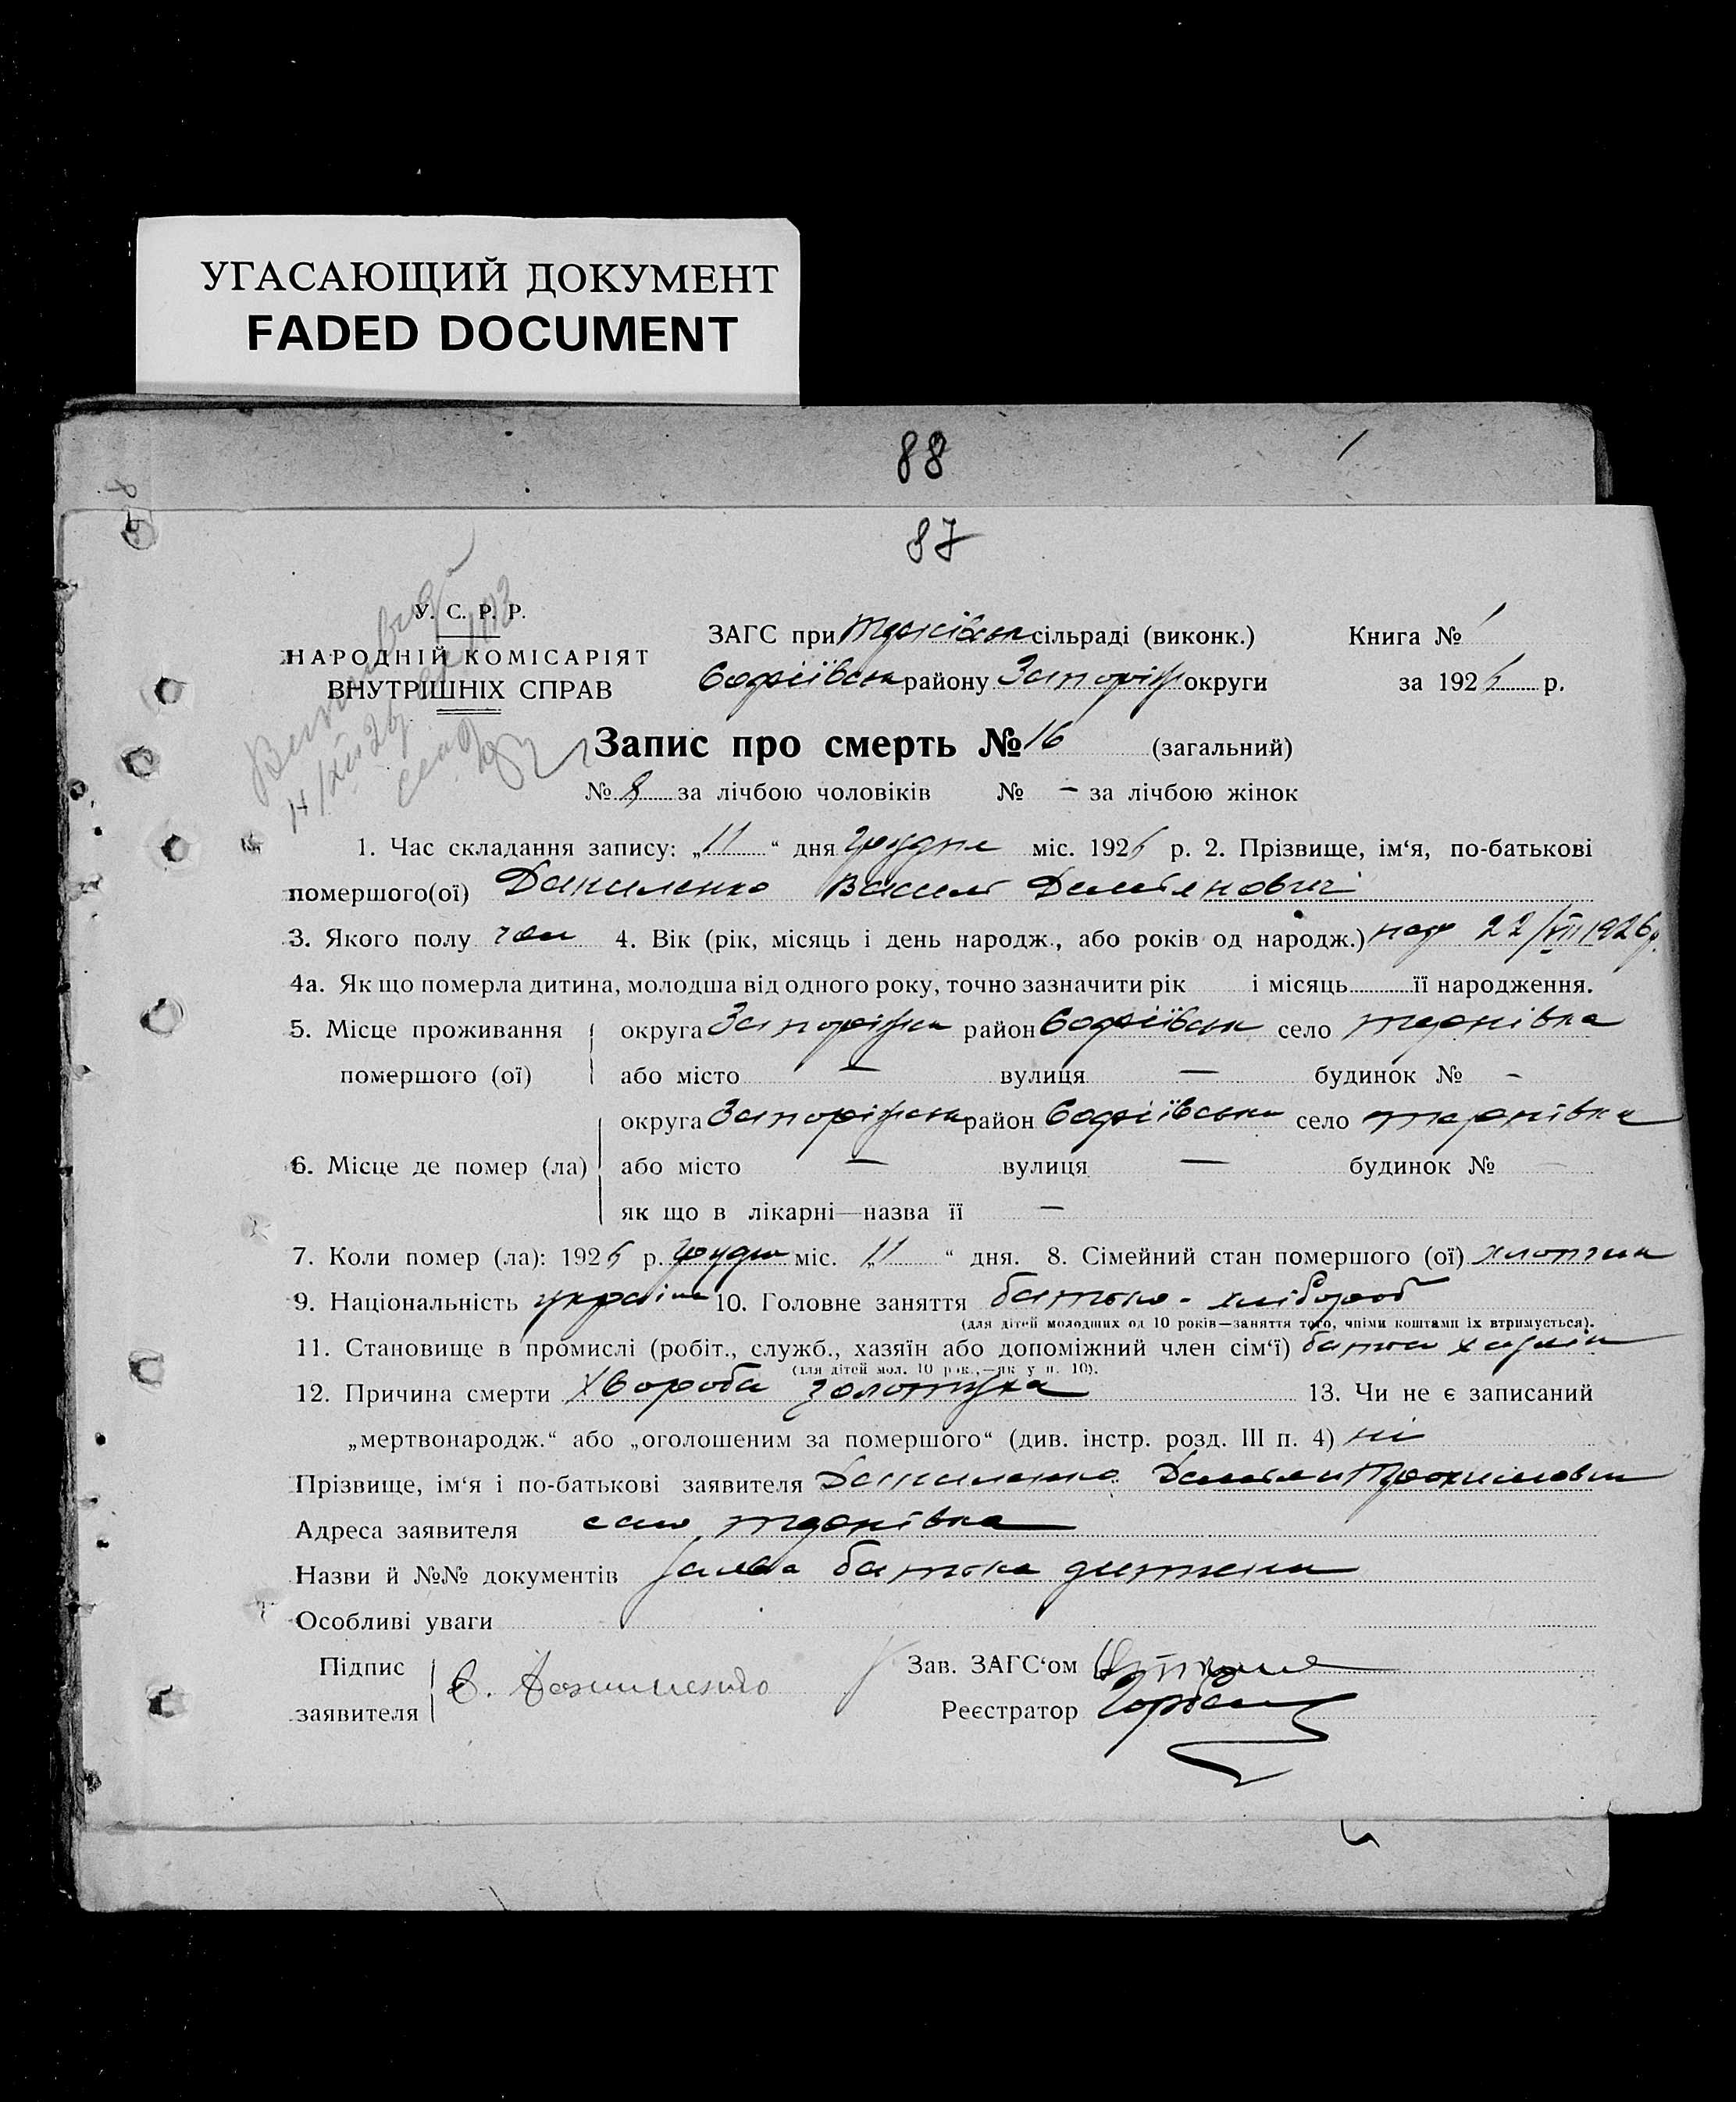 УГАСАЮЩИЙ ДОКУМЕНТ
FADED DOCUMENT
88
87
У. С. Р. Р.
НАРОДНІЙ КОМІСАРІЯТ
ВНУТРІШНІХ СПРАВ
ЗАГС при сільраді (виконк.) Книга № 1
Софіївськ району Запоріж округи за 1926 р.
Запис про смерть № 16 (загальний)
№ 8 за лічбою чоловіків № — за лічбою жінок
1. Час складання запису: „11“ дня грудня міс. 1926 р. 2. Прізвище, ім‘я, по-батькові
помершого(ої) Даниленко Василь Демʼянович
3. Якого полу чол 4. Вік (рік, місяць і день народж., або років од народж.) нар 22/VII 1926 р.
4а. Як що померла дитина, молодша від одного року, точно зазначити рік і місяць її народження.
5. Місце проживання округа Запоріжськ район Софіївськ село Тернівка
помершого (ої) або місто — вулиця — будинок № -
округа Запоріжська район Софіївськи село Тернівка
6. Місце де помер (ла) або місто — вулиця — будинок №
як що в лікарні—назва її —
7. Коли помер (ла): 1926 р. грудня міс. „11“ дня. 8. Сімейний стан помершого (ої) хлопчик
9. Національність україн 10. Головне заняття батько - хлібороб
(для дітей молодших од 10 років—заняття того, чпіми коштами їх втримується).
11. Становище в промислі (робіт., служб., хазяїн або допоміжний член сім‘ї) батько хазяїн
(для дітей мол. 10 рок.,—як у п. 10).
12. Причина смерти хвороба золотуха 13. Чи не є записаний
„мертвонародж.“ або „оголошеним за помершого“ (див. інстр. розд. III п. 4) ні
Прізвище, ім‘я і по-батькові заявителя Даниленко Демʼян Трохимович
Адреса заявителя село Тернівка
Назви й №№ документів заява батька дитини
Особливі уваги
Підпис Зав. ЗАГС‘ом
заявителя Реєстратор